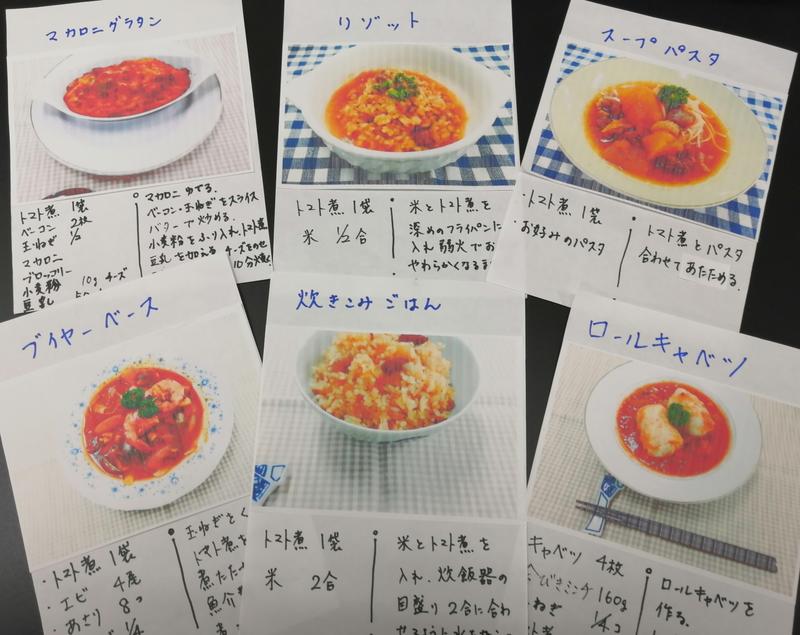 マカロニグラタン
トマト煮 1袋
ベーコン 2枚
玉ねぎ 1/2
マカロニ
ブロッコリー
小麦粉 10g チーズ
豆乳
マカロニゆでる。
ベーコン・玉ねぎをスライス
バターで炒める。
小麦粉をふり入れ、トマト煮
豆乳を加える チーズをのせ
10分焼く
リゾット
トマト煮 1袋
米 1/2合
米とトマト煮を
深めのフライパンに
入れ弱火でお
やわらかくなるま
スープパスタ
トマト煮 1袋
・お好みのパスタ
トマト煮とパスタ
合わせてあたためる。
ブイヤーベース
・トマト煮 1袋
・エビ 4尾
・あさり 8コ
1/4
玉ねぎとく
トマト煮を
煮たた
魚介
炊きこみごはん
トマト煮 1袋
米 2合
米とトマト煮を
入れ、炊飯器の
目盛り2合に合わ
ロールキャベツ
キャベツ 4枚
合びきミンチ 160g
ねぎ 1/4コ
ロールキャベツを
作る。